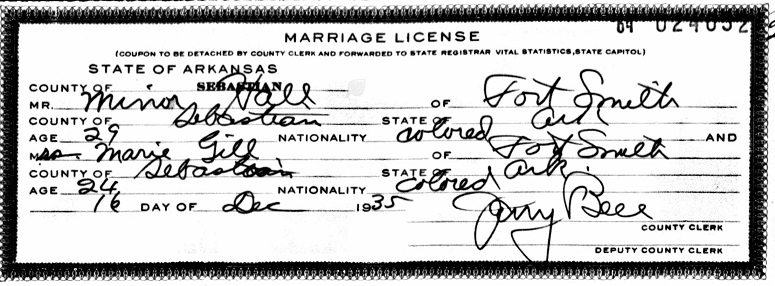 64 024052
MARRIAGE LICENSE
(COUPON TO BE DETACHED BY COUNTY CLERK AND FORWARDED TO STATE REGISTRAR VITAL STATISTICS, STATE CAPITOL)
STATE OF ARKANSAS
COUNTY OF SEBASTIAN
MR. Minor Hall OF Fort Smith
COUNTY OF Sebastian STATE OF Ark
AGE 29 NATIONALITY colored AND
Marie Gill OF Fort Smith
COUNTY OF Sebastian STATE OF Ark.
AGE 24 NATIONALITY colored
16 DAY OF Dec 1935 Jerry
COUNTY CLERK
DEPUTY COUNTY CLERK